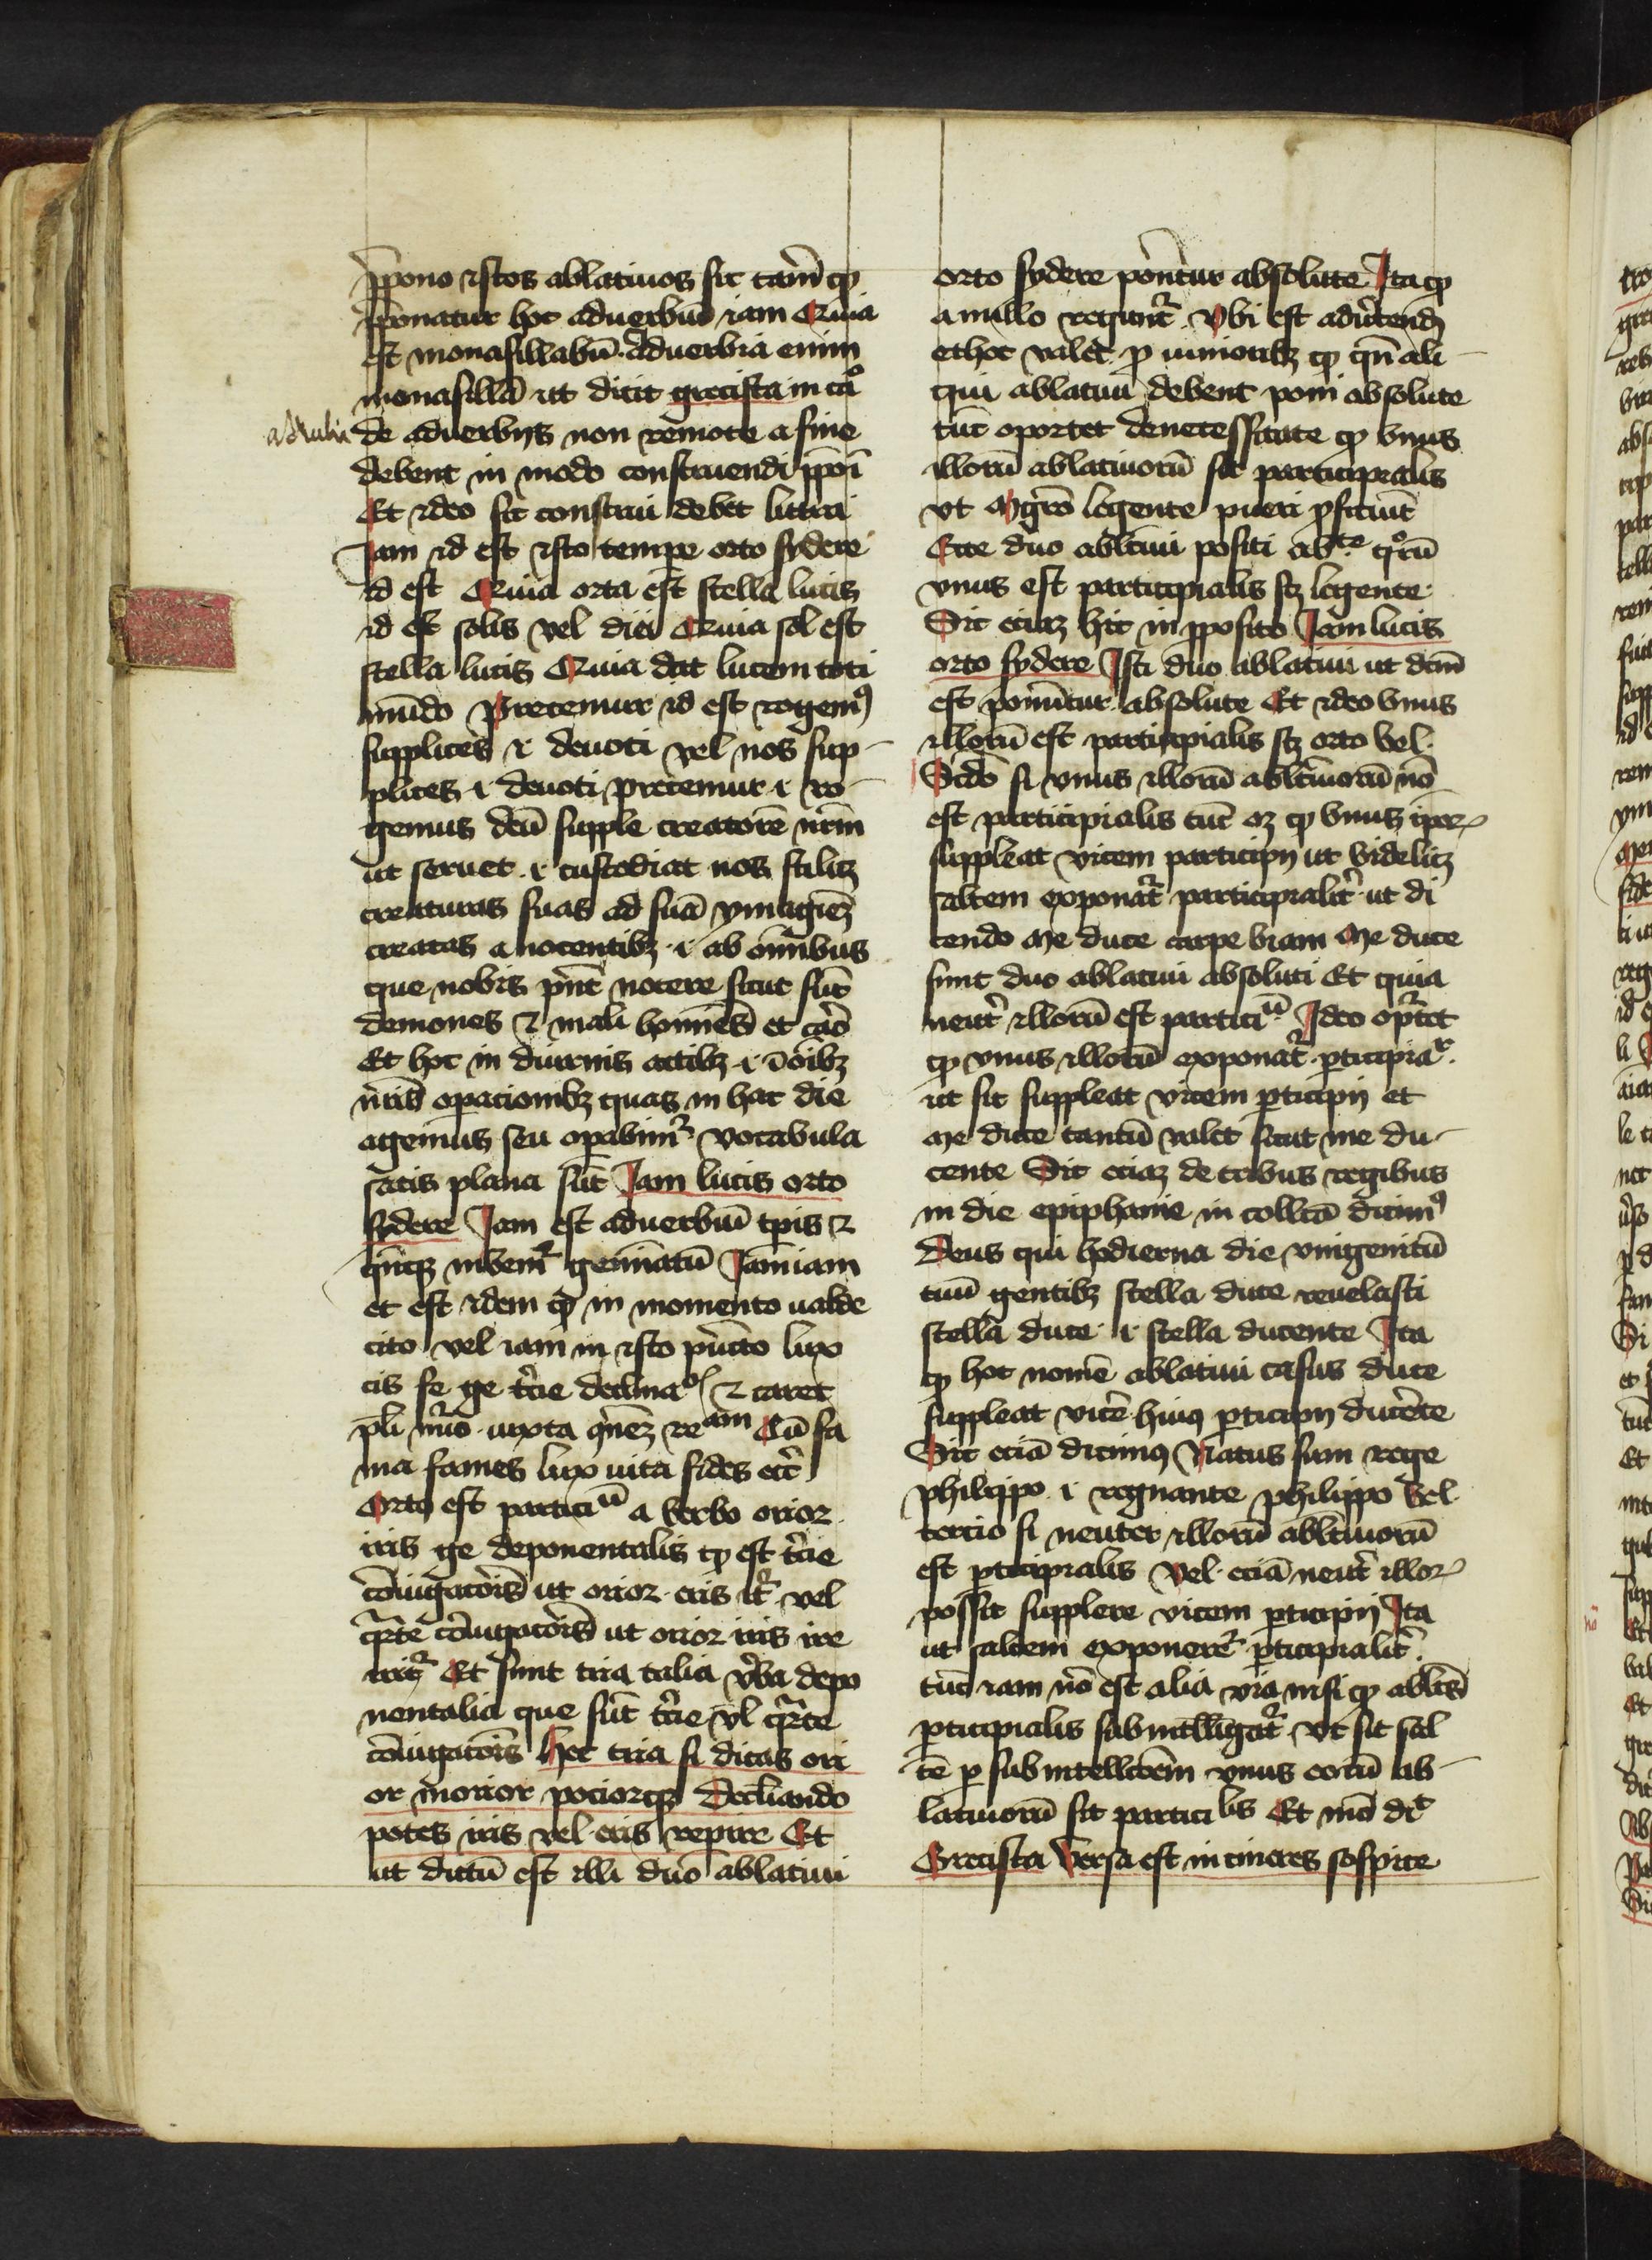 p̄pono istos ablatiuos sic tam̄ ꝙ
p̄ponatur hoc aduerbiū iam Quia
est monasillabū. Aduerbia enim
monasillā ut dicit grecista in caº
de aduerbijs non remote a fine
debent in modo construendi p̄poī
Et ideo sic construi debet littera
Iam id est isto tempe orto sydere
id est Quia orta est stella lucis
id est solis vel diei Quia sol est
stella lucis Quia dat lucem toti
mūdo Precemur id est rogemꝰ
supplices .i. deuoti vel nos sup-
plices .i. deuoti precemur .i. ro-
gemus deū supple creatorē nr̄m
ut seruet .i. custodiat nos scilicꝫ
creaturas suas ad suā ymagiēꝫ
creatas a nocentibꝫ .i. ab om̄ibus
que nobis pn̄t nocere sicut sūt
demones & mali homīes et caro
Et hoc in diurnis actibꝫ .i. ī oībꝫ
nr̄is opacionibꝫ quas in hac die
agemus seu opabimꝰ vocabula
satis plana sūt Iam lucis orto
sydere Iam est aduerbiū tpis &
qn̄qꝫ inuenit² geminatū Iamiam
et est idem ꝙ in momento valde
cito vel iam in isto pūcto lux
cis fe ge t̄cie declinaoˢ & caret
pli nūo iuxta qn̄eꝫ reᵃᵐ Cū fa
ma fames lux uita fides etc̄
Orto est particiū a verbo orior
iris ge deponentalis ꝙ est t̄cie
cōiugacōis ut orior eris it² vel
qrte cōiugacōis ut orior iris ire
irit² Et sunt tria talia v̄ba depo
nentalia que sūt t̄cie vl qrte
cōiugacōis Hec tria si dicas ori
or morior pociorqꝫ Decliando
potes iris vel eris repire Et
ut dictū est illi duo ablatiui
orto sydere ponūtur absolute Ita ꝙ
a nullo regunt² Ubi est aduertendꝫ
et hoc valet p iunioribꝫ ꝙ qn̄ ali-
qui ablatiui debent poni absolute
tūc oportet de necessitate ꝙ vnus
illorū ablatiuorū sit participialis
vt Mgro legente pueri pficiunt
Ecce duo abltiui positi abᵗᵉ qºrū
vnus est participialis scꝫ legente
Sic eciaꝫ hic in pposito Iam lucis
orto sydere Isti duo ablatiui ut dcm̄
est ponūtur absolute Et ideo vnus
illorū est participialis scꝫ orto vel
Scdo si vnus illorū abltiuorū nō
est participialis tūc oꝫ ꝙ vnus ipoꝝ
suppleat vicem participij ut videlicꝫ
saltem exponat² participialit² ut di
cendo Me duce carpe viam Me duce
sunt duo ablatiui absoluti Et quia
neut² illorū est particiū Ideo oportet
ꝙ vnus illorū exponat² pticipiaʳ
ut sic suppleat vicem pticipij et
Me duce tantū valet sicut me du-
cente Sic eciaꝫ de tribus regibus
in die epiphanie in collcā dicimꝰ
Deus qui hodierna die vnigenitū
tuū gentibꝫ stella duce reuelasti
stella duce .i. stella ducente Ita
ꝙ hoc nomē ablatiui casus duce
suppleat vicē huiꝰ pticipij ducēte
Sic eciā dicimꝰ Natus sum rege
philippo .i. regnante philippo Vel
tercio si neuter illorū abltiuorū
est pticipialis Vel eciā neut² illoꝝ
possit supplere vicem pticipij Ita
ut saltem exponeret² pticipialit²
tūc iam nō est alia via nisi ꝙ abltus
pticipialis subintelligat² vt sic sal
tē p subintellectōem vnus eorū ab-
latiuorū sit particiˡⁱˢ Et ᵐō dīc
Grecista Versa est in cineres sospite